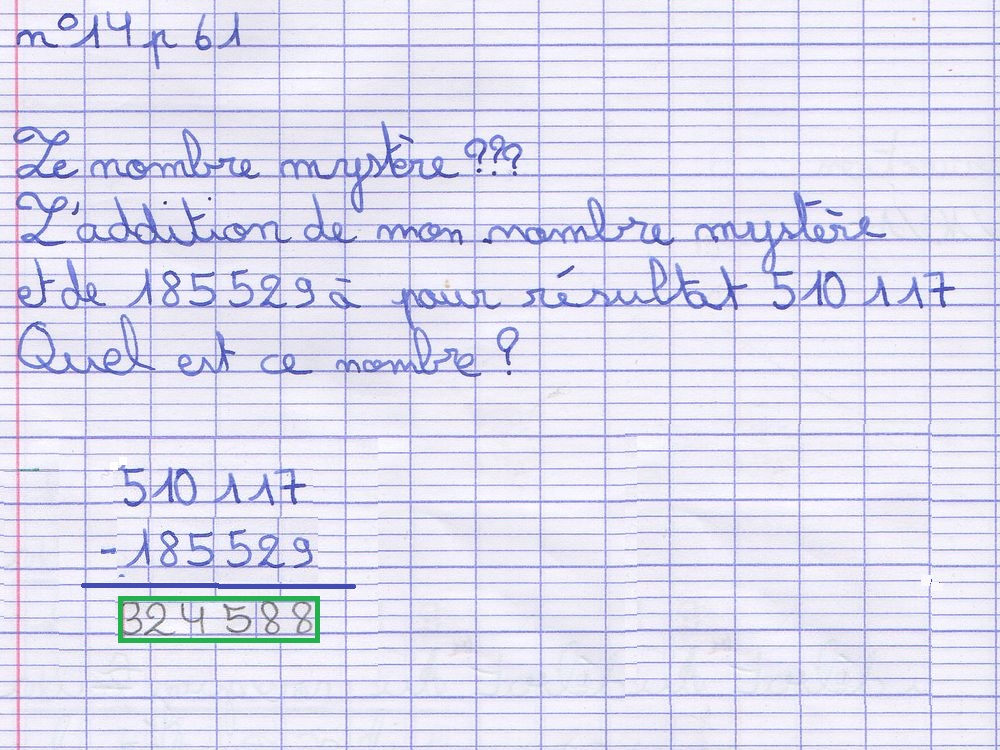 n°14 p 61
Le nombre mystère ???
L'addition de mon nombre mystère
et de 185 529 à pour résultat 510 117
Quel est ce nombre ?
510 117
- 185 529
324 588